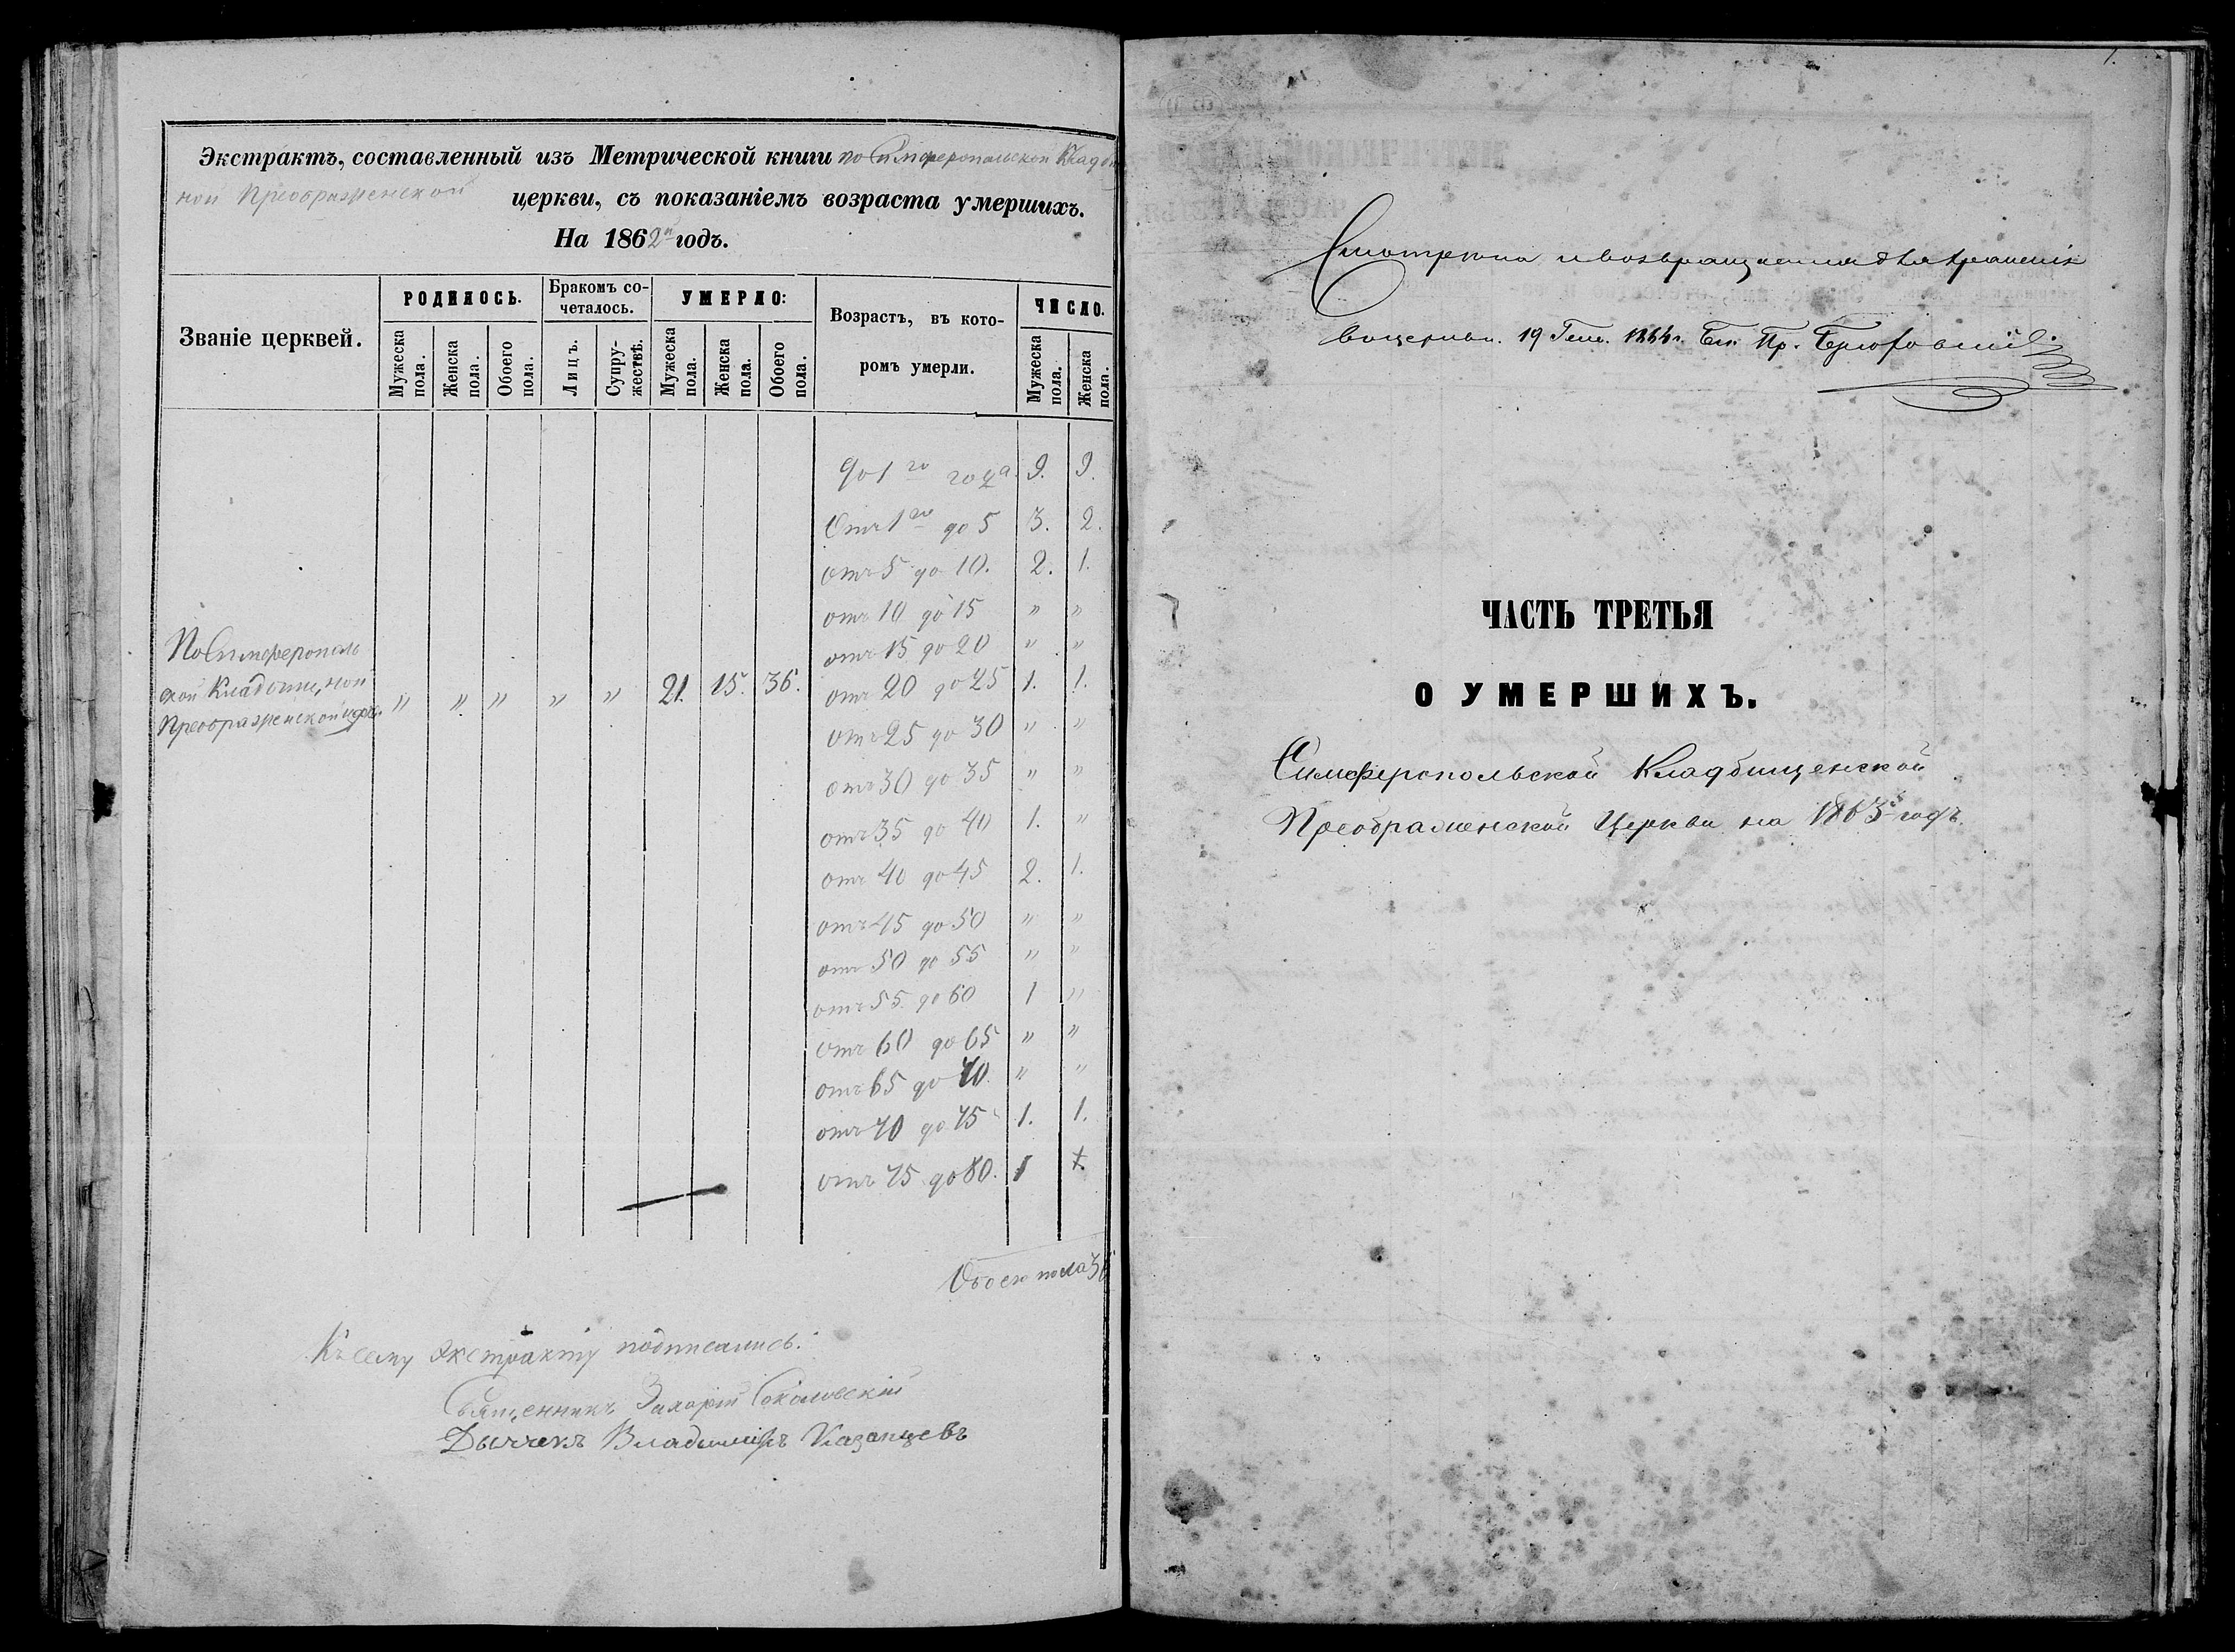 Экстрактъ, составленный изъ Метрической книги по Симферопольской Кладби
ной Преображенской церкви, съ показаніемъ возраста умершихъ.
На 1862й годъ.
Званіе церквей.
РОДИЛОСЬ.
Мужеска пола.
Женска пола.
Обоего пола.
Бракомъ со-
четалось.
Лицъ.
Супру-
жествъ.
УМЕРЛО:
Мужеска пола.
Женска пола.
Обоего пола.
Возрастъ, въ кото-
ромъ умерли.
ЧИСЛО.
Мужеска пола.
Женска пола.
До 1го года. 9. 9.
Отъ 1го до 5 3. 2.
отъ 5 до 10. 2. 1.
отъ 10 до 15 " "
отъ 15 до 20 " "
По Симферополь
ской Кладбищ,ной
Преображенской церкви
" " " " " 21. 15. 36.
отъ 20 до 25 1. 1.
отъ 25 до 30 " "
отъ 30 до 35 " "
отъ 35 до 40 1. "
отъ 40 до 45 2. 1.
отъ 45 до 50 " "
отъ 50 до 55 " "
отъ 55 до 60 1 "
отъ 60 до 65 " "
отъ 65 до 70. " "
отъ 70 до 75 1. 1.
отъ 75 до 80. 1
Обоего пола 36
Къ сему экстракту подписались:
Священникъ Захарій Соколовскій
Дьячекъ Владимиръ Казанцевъ
1.
Смотрена и возвращена для храненія
въ церкви. 19 Ген. 1864г. Бл. Пр.
ЧАСТЬ ТРЕТЬЯ
О УМЕРШИХЪ.
Симферопольской Кладбищенской
Преображенской Церкви на 1863 годъ.